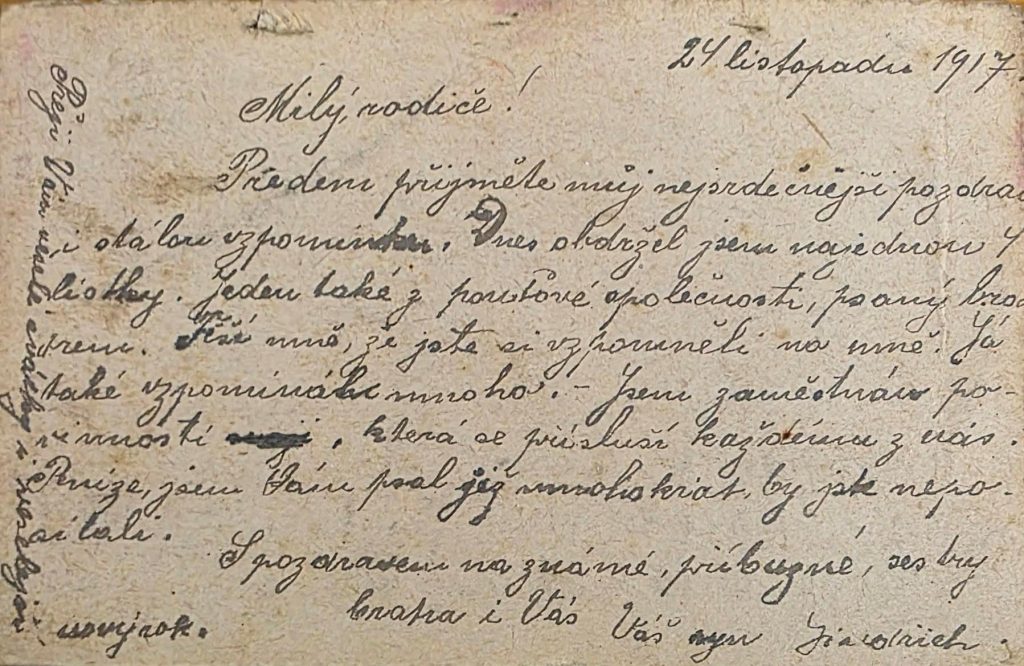 24 listopadu 1917.
Milý rodiče!
Předem přijměte můj nejsrdečnější pozdrav
i stálou vzpomínku. Dnes obdržel jsem najednou 4
lístky. Jeden také z pouťové společnosti, psaný bra-
trem. Těší mně, že jste si vzpomněli na mně. Já
také vzpomínám mnoho. – Jsem zaměstnán po-
vinností, která se přísluší každému z nás.
peníze, jsem Vám psal již mnohokrát, by jste nepo-
sílali.
S pozdravem na známé, příbuzné, sestry
bratra i Vás Váš syn Jindřich.
Přeji Vám veselé svátky i